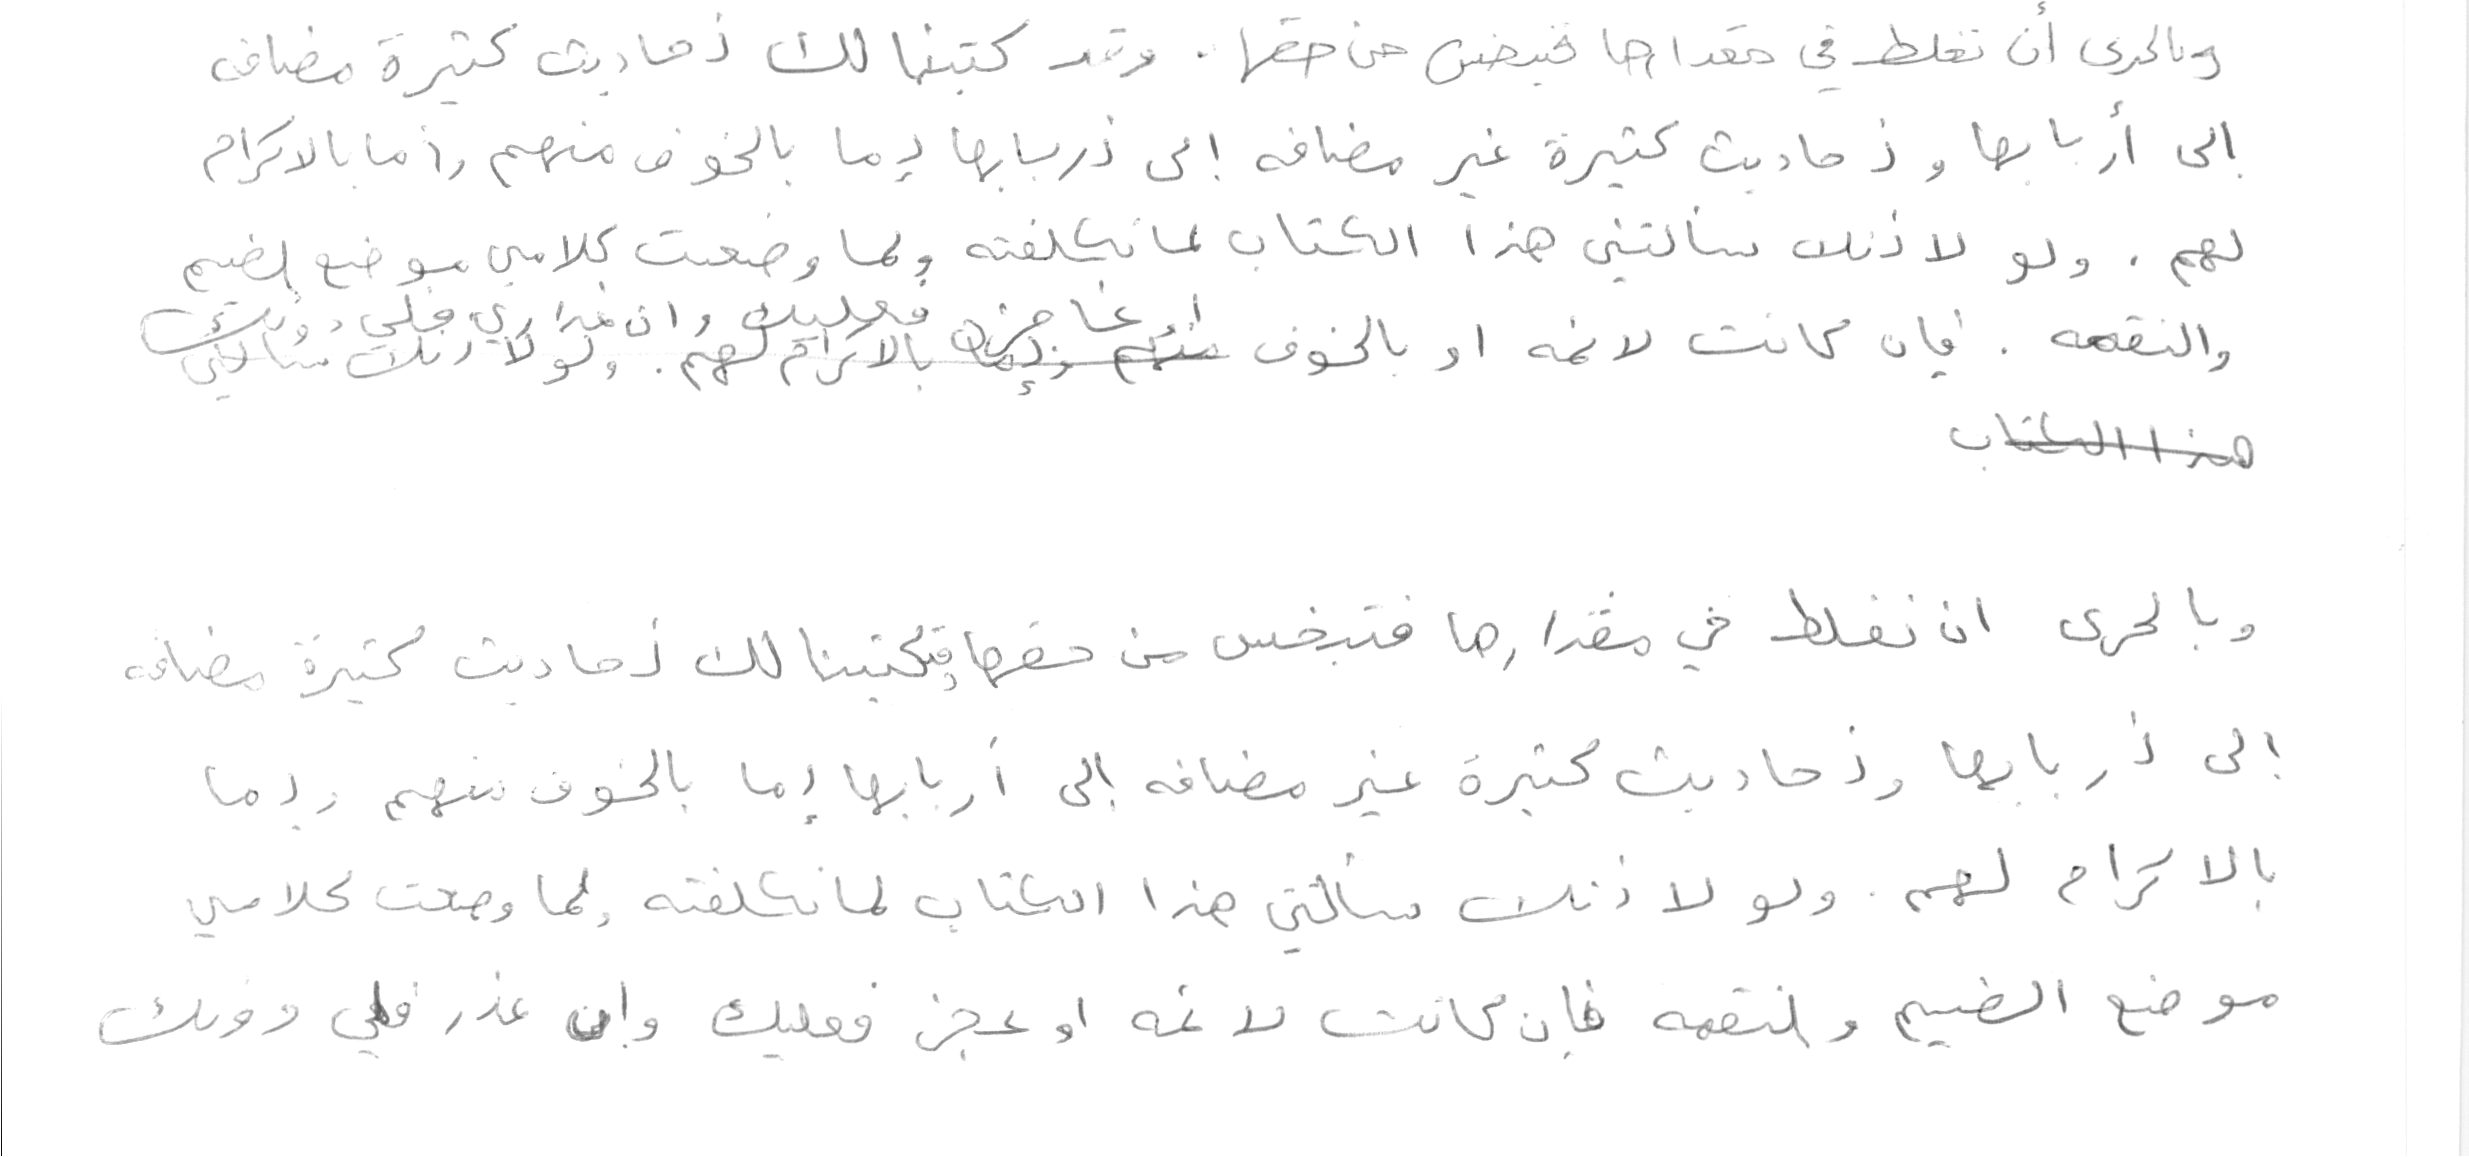 وبالحرى أن نغلط في مقدارها فنبخس من حقها . وقد كتبنا لك أحاديث كثيرة مضافه
إلى أربابها وأحاديث كثيرة غير مضافه إلى أربابها إما بالخوف منهم وأما بالاكرام
لهم . ولو لا أنك سألتني هذا الكتاب لما تكلفته ولما وضعت كلامي موضع الضيم
والنقمه . فإن كانت لائمه او بالخوف منهم وإما بالاكرام لهم . ولولا أنك سألتني
او عجز فعليك وان عذر فلي دونك
هذا الكتاب
وبالحرى ان نغلط في مقدارها فتبخس من حقها وقد كتبنا لك أحاديث كثيرة مضافه
إلى أربابها وأحاديث كثيرة غير مضافه إلى أربابها إما بالخوف منهم وإما
بالاكرام لهم . ولو لا أنك سألتني هذا الكتاب لما تكلفته ولما وضعت كلامي
موضع الضيم والنقمه فإن كانت لائمه او عجز فعليك وإن عذر فلي دونك